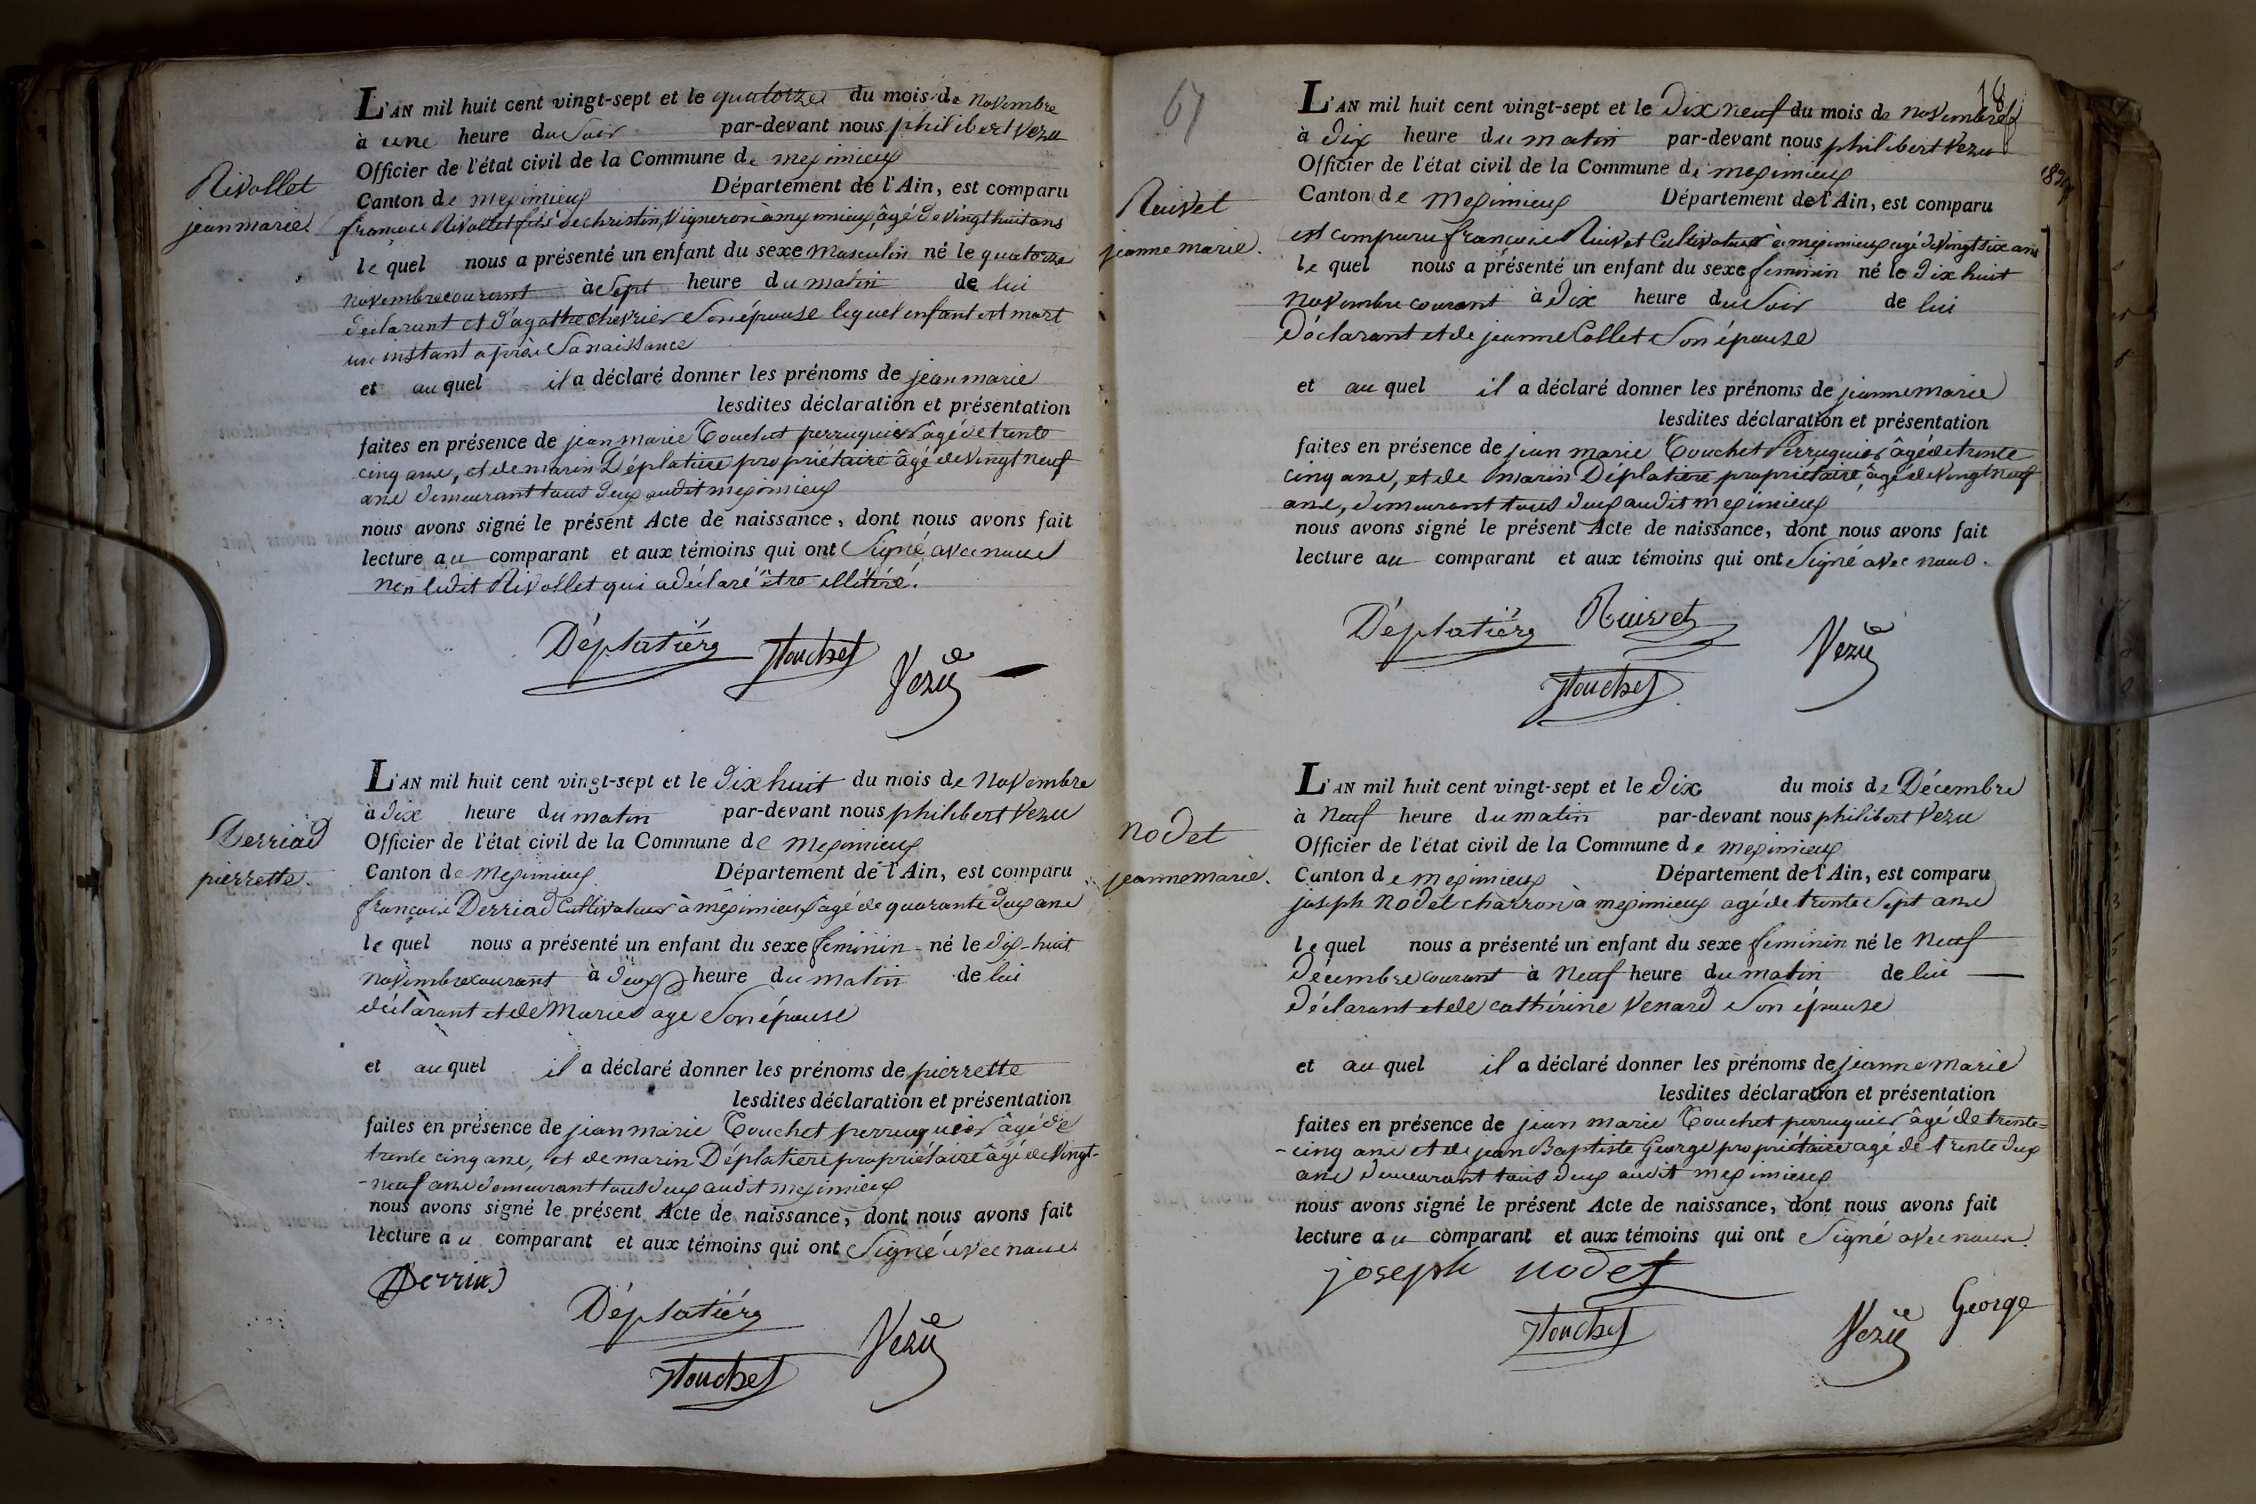 L'AN mil huit cent vingt-sept et le quatorze du mois de Novembre
à une heure du Soir par-devant nous philibert Vezu
Officier de l'état civil de la Commune de meximieux
Canton de meximieux Département de l'Ain, est comparu
Rivollet
jean marie
françois Rivollet fils de christin, Vigneron à meximieux, âgé de vingt huit ans
le quel nous a présenté un enfant du sexe masculin né le quatorze
novembre courant à Sept heure du matin de lui
déclarant et d'agathe chevrier Son épouse lequel enfant est mort
un instant après Sa naissance
et au quel il a déclaré donner les prénoms de jean marie
lesdites déclaration et présentation
faites en présence de jean marie Touchet perruquier âgé de trente
cinq ans, et de marin Déplatière propriétaire âgé de vingt neuf
ans demeurant tous deux audit meximieux
nous avons signé le présent Acte de naissance, dont nous avons fait
lecture au comparant et aux témoins qui ont Signé avec nous
non ledit Rivollet qui a déclaré être illétéré.
Déplatière Touchet Vezu
L'AN mil huit cent vingt-sept et le dix huit du mois de Novembre
à dix heure du matin par-devant nous philibert Vezu
Officier de l'état civil de la Commune de meximieux
Canton de meximieux Département de l'Ain, est comparu
Derriad
pierrette.
françois Derriad Cultivateur à méximieux âgé de quarante deux ans
le quel nous a présenté un enfant du sexe féminin né le dix-huit
novembre courant à deux heure du matin de lui
déclarant et de Marie Sage Son épouse
et au quel il a déclaré donner les prénoms de pierrette
lesdites déclaration et présentation
faites en présence de jean marie Touchet perruquier âgé de
trente cinq ans, et de marin Déplatière propriétaire âgé de vingt-
-neuf ans demeurant tous deux audit meximieux
nous avons signé le présent Acte de naissance, dont nous avons fait
lecture au comparant et aux témoins qui ont Signé avec nous.
Derriad Déplatière
Touchet Vezu
67
18
L'AN mil huit cent vingt-sept et le Dix neuf du mois de novembre
à dix heure du matin par-devant nous philibert Vezu
Officier de l'état civil de la Commune de meximieux
Canton de meximieux Département de l'Ain, est comparu
1827
Ruivet
jeanne marie.
est comparu françois Ruivet Cultivateur à méximieux agé de vingt six ans
le quel nous a présenté un enfant du sexe feminin né le dix huit
novembre courant à dix heure du Soir de lui
Déclarant et de jeanne Collet Son épouse
et au quel il a déclaré donner les prénoms de jeanne marie
lesdites déclaration et présentation
faites en présence de jean marie Touchet Perruquier âgé de trente
cinq ans, et de marin Déplatière propriétaire, âgé de vingt neuf
ans, demeurant tous deux audit meximieux
nous avons signé le présent Acte de naissance, dont nous avons fait
lecture au comparant et aux témoins qui ont Signé avec nous.
Déplatière Ruivet Vezu
Touchet
L'AN mil huit cent vingt-sept et le dix du mois de Décembre
à Neuf heure du matin par-devant nous philibert Vezu
Officier de l'état civil de la Commune de meximieux
Canton de meximieux Département de l'Ain, est comparu
nodet
jeanne marie.
joseph nodet charron à meximieux agé de trente Sept ans
le quel nous a présenté un enfant du sexe feminin né le Neuf
Décembre courant à Neuf heure du matin de lui
Déclarant et de cathérine Venard Son épouse
et au quel il a déclaré donner les prénoms de jeanne marie
lesdites déclaration et présentation
faites en présence de jean marie Touchet perruquier âgé de trente-
-cinq ans et de jean Baptiste George propriétaire agé de trente deux
ans demeurant tous deux audit meximieux
nous avons signé le présent Acte de naissance, dont nous avons fait
lecture au comparant et aux témoins qui ont Signé avec nous.
joseph nodet
Touchet Vezu George